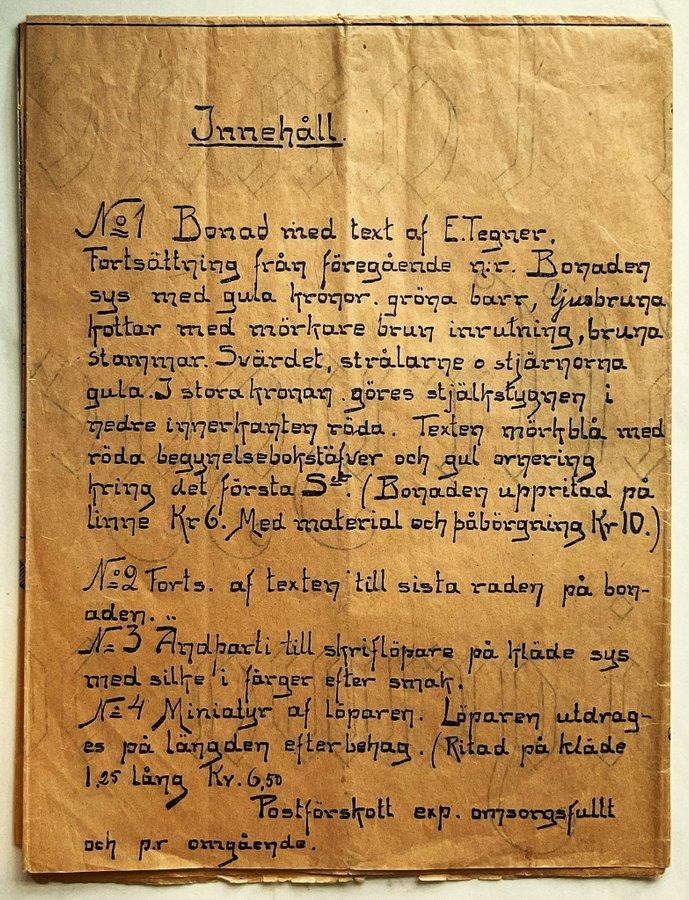 Innehåll.
No 1 Bonad med text af E. Tegner.
Fortsättning från föregående n:r. Bonaden
sys med gula kronor. gröna barr, ljusbruna
kottar med mörkare brun inrutning, bruna
stammar. Svärdet, strålarne o stjärnorna
gula. I stora kronan. göres stjälkstygnen i
nedre innerkanten röda. Texten mörkblå med
röda begynelsebokstäfver och gul ornering
kring det första S-et. (Bonaden uppritad på
linne Kr 6. Med material och påbörgning Kr 10.)
No 2 Forts. af texten till sista raden på bon-
aden.
No 3 Ändparti till skriflöpare på kläde sys
med silke i färger efter smak.
No 4 Miniatyr af löparen. Löparen utdrag-
es på längden efter behag. (Ritad på kläde
1,25 lång Kr. 6,50
Postförskott exp. omsorgsfullt
och p.r omgående.